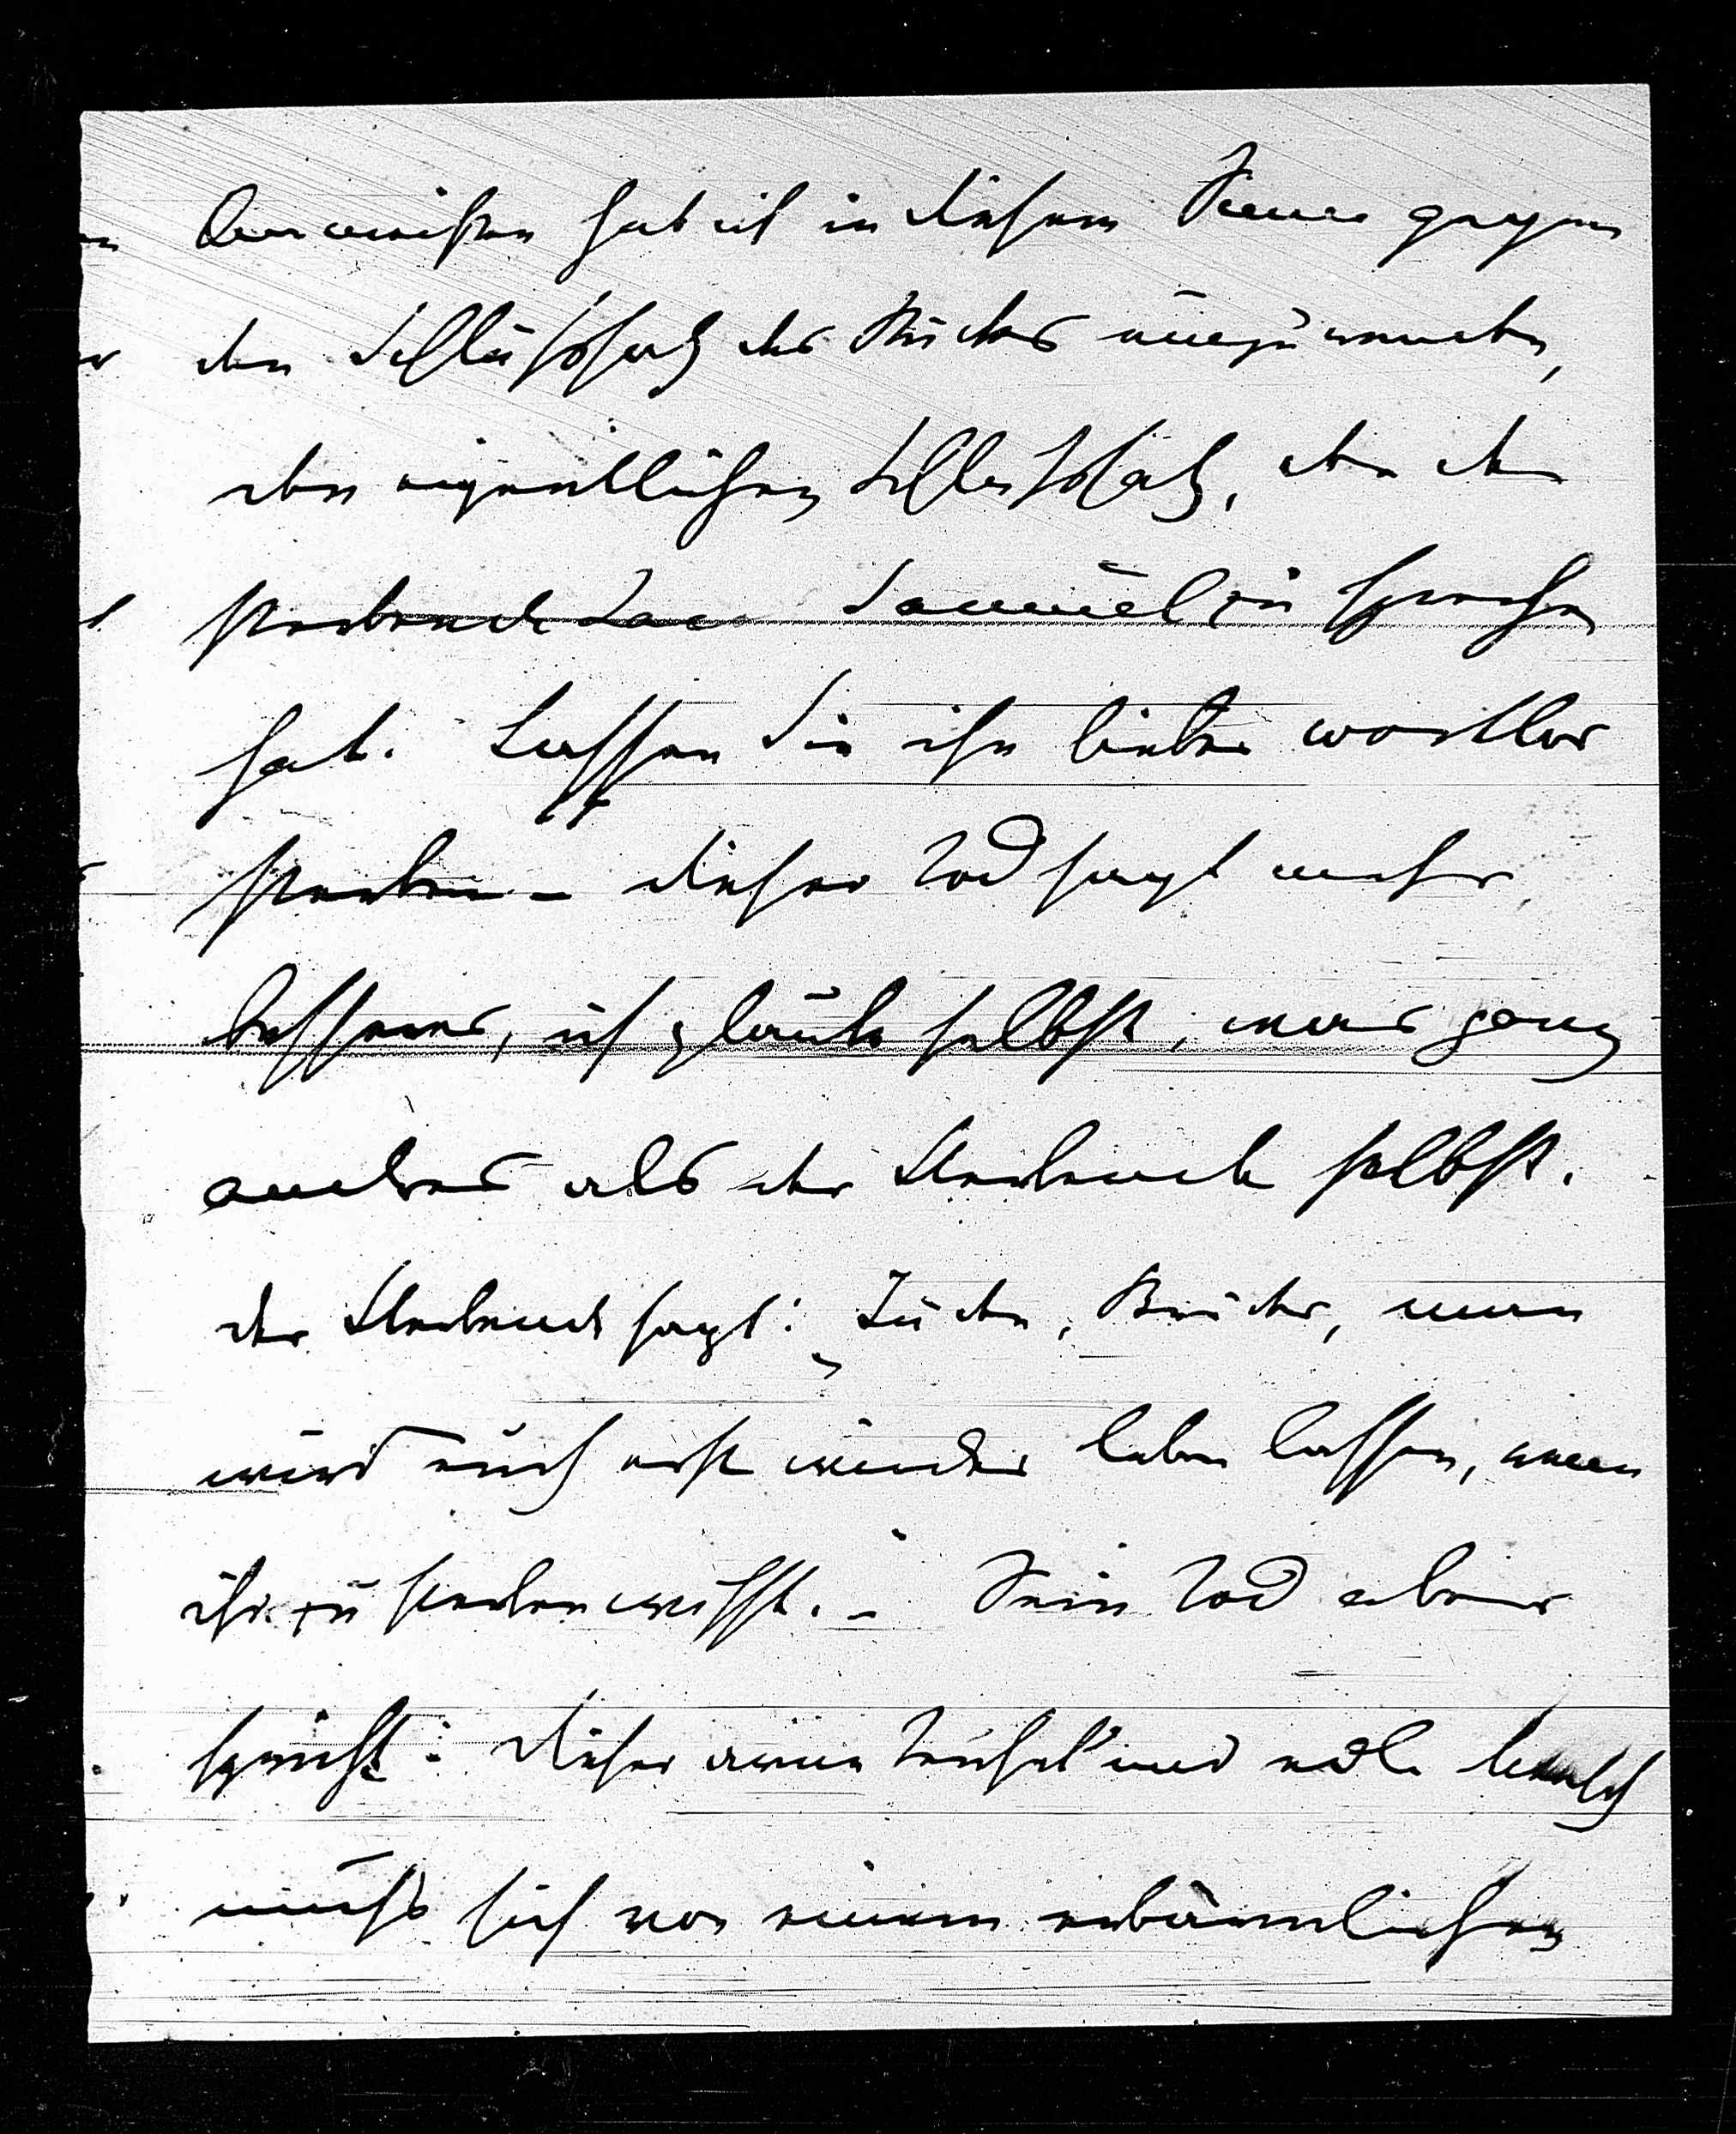 Am meisten hab ich in diesem Sinne gegen
den Schlußsatz des Stückes einzuwenden,
den eigentlichen Schlußsatz, den der
sterbende Samuel zu sprechen
hat. Lassen Sie ihn lieber wortlos
sterben – dieser Tod sagt mehr,
besseres, ich glaube selbst, was ganz
andres als der Sterbende selbst.
Der Sterbende sagt: „Juden, Brüder, man
wird euch erst wieder leben lassen, wenn
ihr zu sterben wisst. – Sein Tod aber
spricht: dieser arme Teufel und edle Mensch
muß sich von einem erbärmlichen